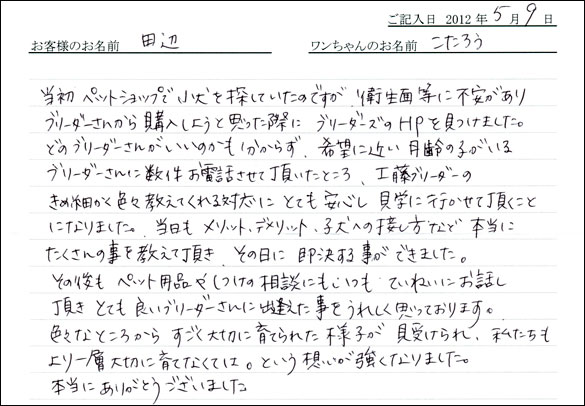 ご記入日 2012年5月9日
お客様のお名前 田辺 ワンちゃんのお名前 こたろう
当初 ペットショップで小犬を探していたのですが、衛生面等に不安があり
ブリーダーさんから購入しようと思った際に ブリーダーズのHPを見つけました。
どのブリーダーさんがいいのかも分からず、希望に近い月齢の子がいる
ブリーダーさんに数件お電話させて頂いたところ、工藤ブリーダーの
きめ細かく色々教えてくれる対応に とても安心し 見学に行かせて頂くこと
になりました。当日も メリット、デメリット、子犬への接し方など 本当に
たくさんの事を教えて頂き、その日に 即決する事ができました。
その後も ペット用品やしつけの相談にもいつも ていねいにお話し
頂き とても良いブリーダーさんに出逢えた事をうれしく思っております。
色々なところから すごく大切に育てられた様子が 見受けられ、私たちも
より一層大切に育てなくては。という想いが強くなりました。
本当にありがとうございました